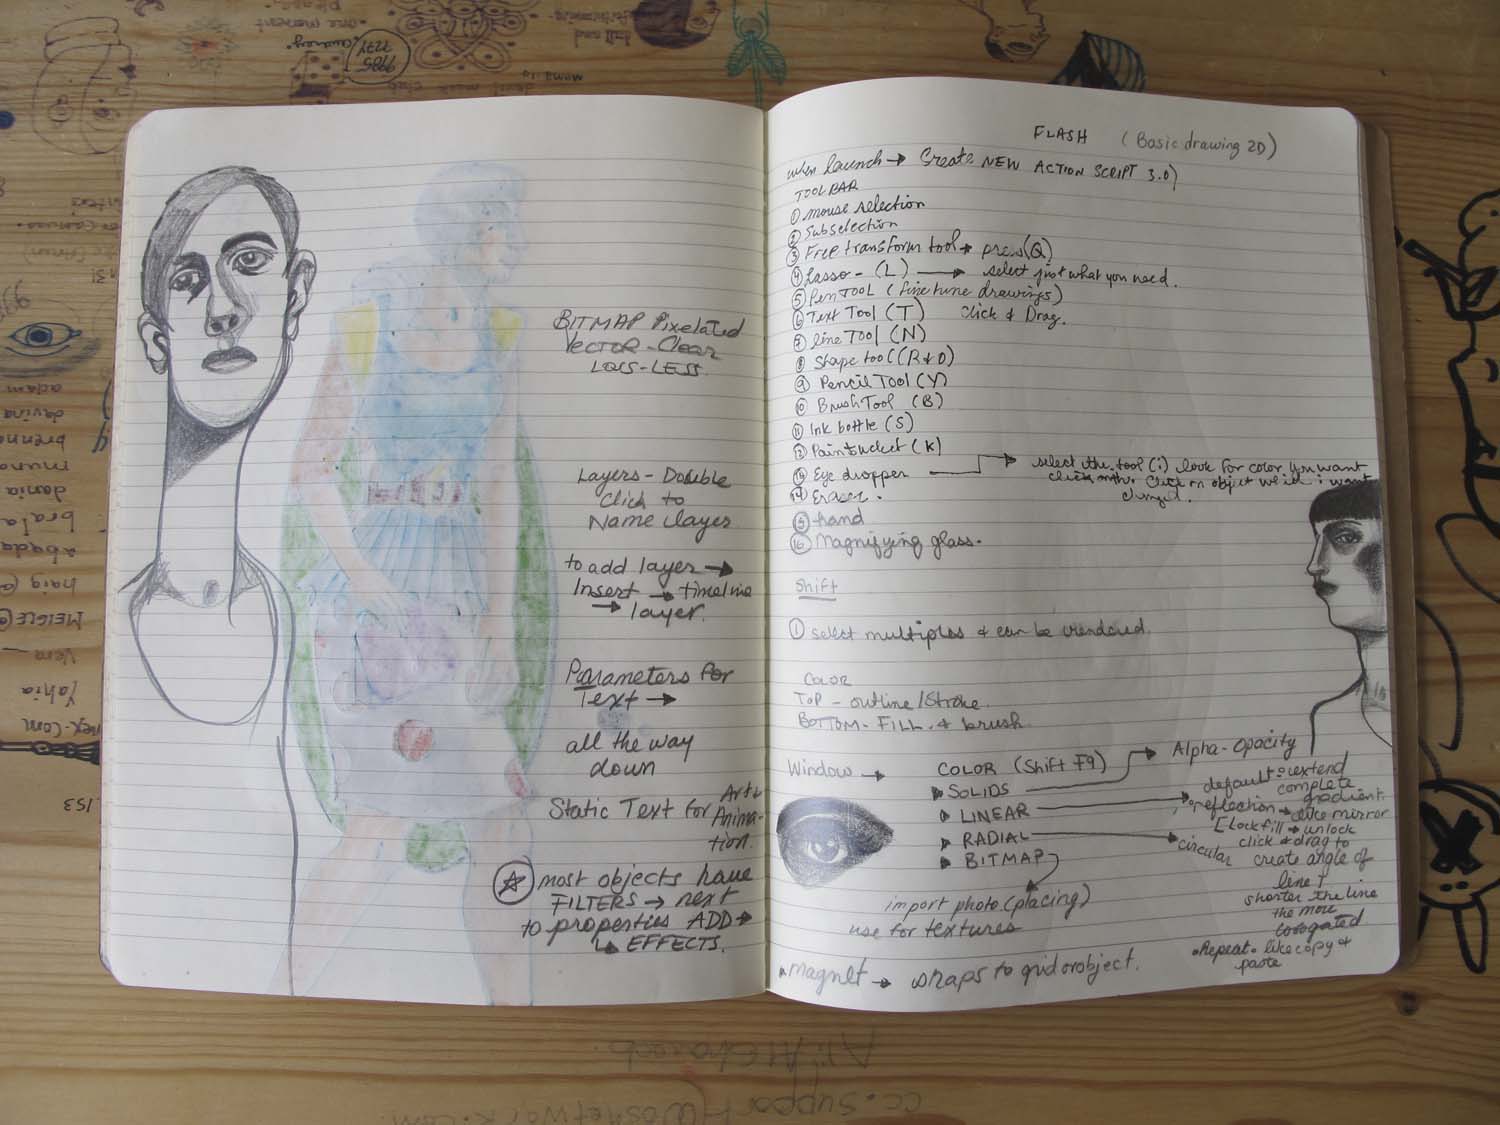 BITMAP Pixelated
VECTOR - Clear
LOIS-LESS.
Layers - Double
Click to
Name layer
to add layer →
Insert → timeline
→ layer.
Parameters For
Text →
all the way
down
Static Text for Art &
Anima-
tion.
most objects have
FILTERS → next
to properties ADD →
↳ EFFECTS.
FLASH (Basic drawing 2D)
when launch → Create NEW ACTION SCRIPT 3.0)
TOOLBAR
① mouse selection
② Subselection
③ Free transform tool → press (Q)
④ Lasso - (L) → select just what you need.
⑤ Pen TOOL (finetune drawings)
⑥ Text Tool (T) Click & Drag.
⑦ line Tool (N)
⑧ Shape tool (R & O)
⑨ Pencil Tool (Y)
⑩ Brush Tool (B)
⑪ Ink bottle (S)
⑫ Paintbucket (K)
⑬ Eye dropper → select the tool (i) look for color you want
click on object want
⑭ Eraser.
⑮ hand
⑯ Magnifying glass.
Shift
① select multiples & can be
COLOR
TOP - outline/Stroke
BOTTOM - FILL & brush
Window → COLOR (Shift F9)
SOLIDS → Alpha - opacity
LINEAR → default = extend
complete
gradient.
reflection → like mirror
[Lock fill → unlock
RADIAL → circular
click & drag to
create angle of
line ↑
shorter the line
the more
BITMAP
import photo (placing)
use for textures
• Repeat - like copy &
paste
magnet → snaps to grid or object.
MEIGLE@
Vera
Yahia
153
haig@
dania
muna
davina
adam
9985
7277
one moment
please,